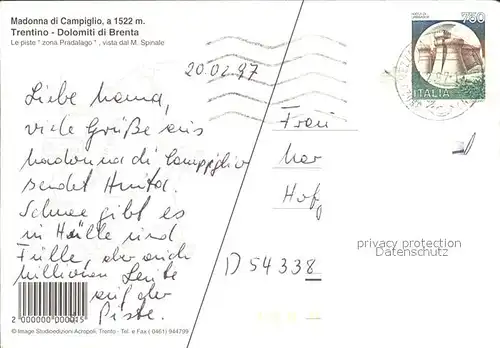 Madonna di Campiglio, a 1522 m.
Trentino - Dolomiti di Brenta
Le piste "zona Pradalago", vista dal M. Spinale
20.02.97
Liebe Mama,
viele Grüße aus
Madonna di Campiglio
sendet Anita.
Schnee gibt es
in Hülle und
Fülle, aber auch
Millionen Leute
auf der
Piste.
2 000000 000015
© Image Studioedizioni Acropoli, Trento - Tel. e Fax (0461) 944799
750
ITALIA
Frau
Mar
Hof
D 54338
privacy protection
Datenschutz